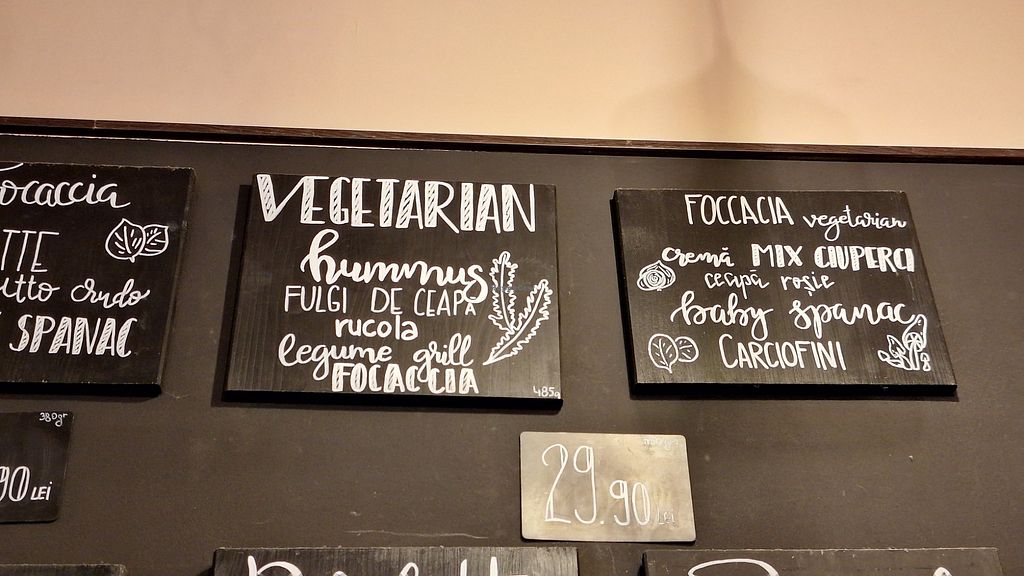 ocaccia
TTE
utto crudo
SPANAC
380gr
90 LEI
VEGETARIAN
hummus
FULGI DE CEAPĂ
rucola
legume grill
FOCACCIA
485g
FOCCACIA vegetarian
cremă MIX CIUPERCI
ceapă roșie
baby spanac
CARCIOFINI
29.90 LEI